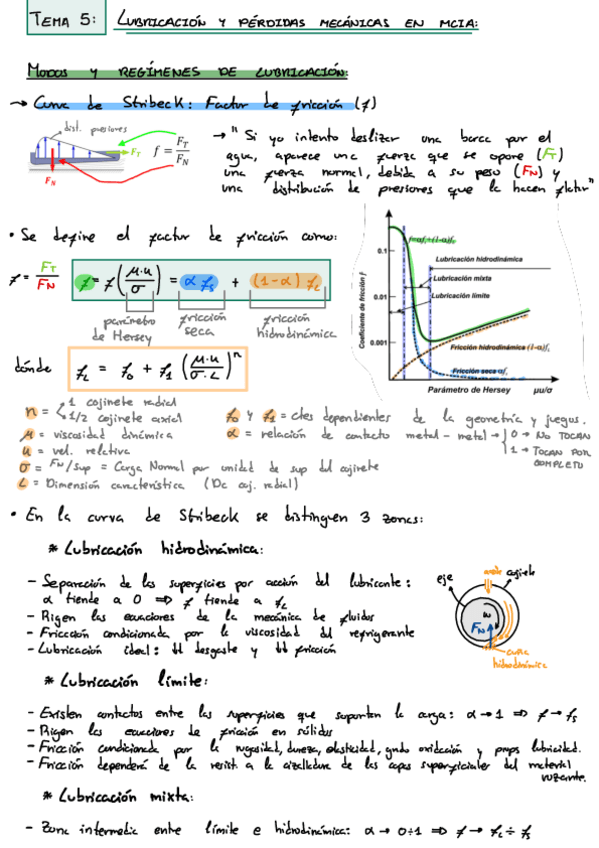 TEMA 5: LUBRICACIÓN Y PÉRDIDAS MECÁNICAS EN MCIA:
MODOS Y REGÍMENES DE LUBRICACIÓN:
→ Curva de Stribeck: Factor de fricción (f)
dist. presiones
F_T
F_N
f = F_T / F_N
→ "Si yo intento deslizar una barca por el
agua, aparece una fuerza que se opone (F_T)
una fuerza normal, debida a su peso (F_N) y
una distribución de presiones que la hacen flotar"
• Se define el factor de fricción como:
f = F_T / F_N
f = f(μ·u / σ) = α f_s + (1-α) f_L
parámetro de Hersey
fricción seca
fricción hidrodinámica
dónde f_L = f_0 + f_1 (μ·u / σ·L)^n
f=αf_s+(1-α)f_L
Lubricación hidrodinámica
Lubricación mixta
Lubricación límite
Fricción hidrodinámica (1-α)f_L
Fricción seca αf_s
Coeficiente de fricción f
0.1
0.01
0.001
Parámetro de Hersey μu/σ
n = 1 cojinete radial
1/2 cojinete axial
μ = viscosidad dinámica
u = vel. relativa
σ = F_N/sup = Carga Normal por unidad de sup del cojinete
L = Dimensión característica (Dc coj. radial)
f_0 y f_1 = ctes dependientes de la geometría y juegos.
α = relación de contacto metal-metal → 0 → NO TOCAN
1 → TOCAN POR COMPLETO
• En la curva de Stribeck se distinguen 3 zonas:
* Lubricación hidrodinámica:
- Separación de las superficies por acción del lubricante:
α tiende a 0 ⇒ f tiende a f_L
- Rigen las ecuaciones de la mecánica de fluidos
- Fricción condicionada por la viscosidad del refrigerante
- Lubricación ideal: ↓↓ desgaste y ↓↓ fricción
eje
aceite
cojinete
ω
F_N
cuña hidrodinámica
* Lubricación límite:
- Existen contactos entre las superficies que soportan la carga: α → 1 ⇒ f → f_s
- Rigen las ecuaciones de fricción en sólidos
- Fricción condicionada por la rugosidad, dureza, elasticidad, grado oxidación y props lubricidad.
- Fricción dependerá de la resist a la cizalladura de las capas superficiales del material
rozante.
* Lubricación mixta:
- Zona intermedia entre límite e hidrodinámica: α → 0÷1 ⇒ f → f_L ÷ f_s